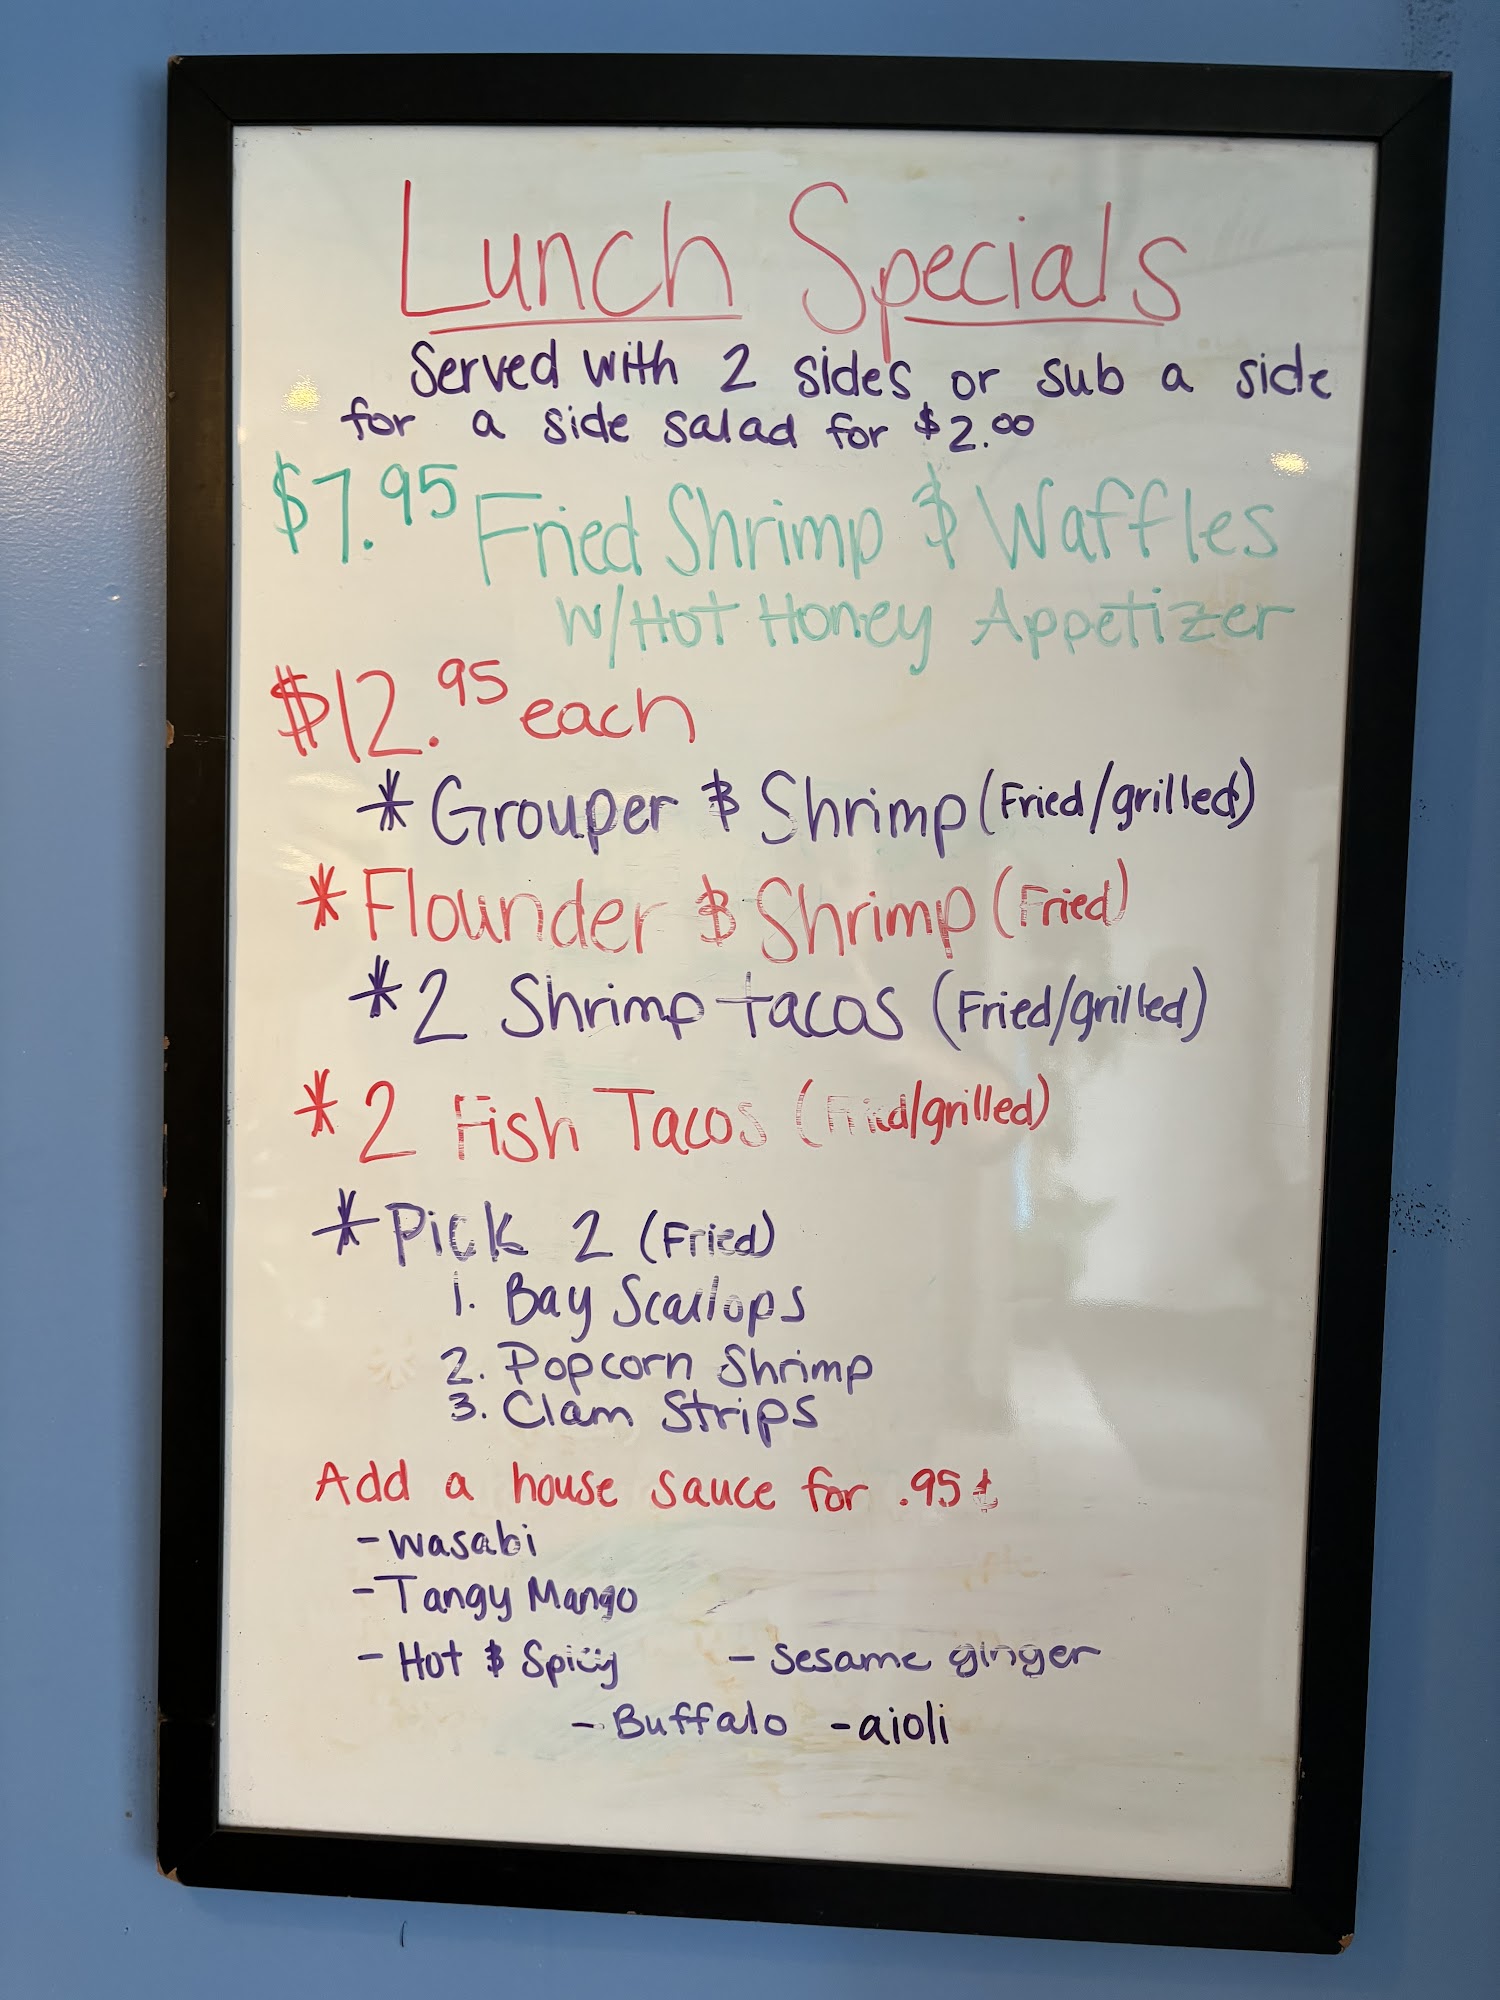 Lunch Specials
Served with 2 sides or sub a side
for a side salad for $2.00
$7.95 Fried Shrimp & Waffles
w/Hot Honey Appetizer
$12.95 each
* Grouper & Shrimp (Fried/grilled)
* Flounder & Shrimp (Fried)
* 2 Shrimp tacos (Fried/grilled)
* 2 Fish Tacos (Fried/grilled)
* Pick 2 (Fried)
1. Bay Scallops
2. Popcorn Shrimp
3. Clam Strips
Add a house sauce for .95¢
- wasabi
- Tangy Mango
- Hot & Spicy - Sesame ginger
- Buffalo - aioli